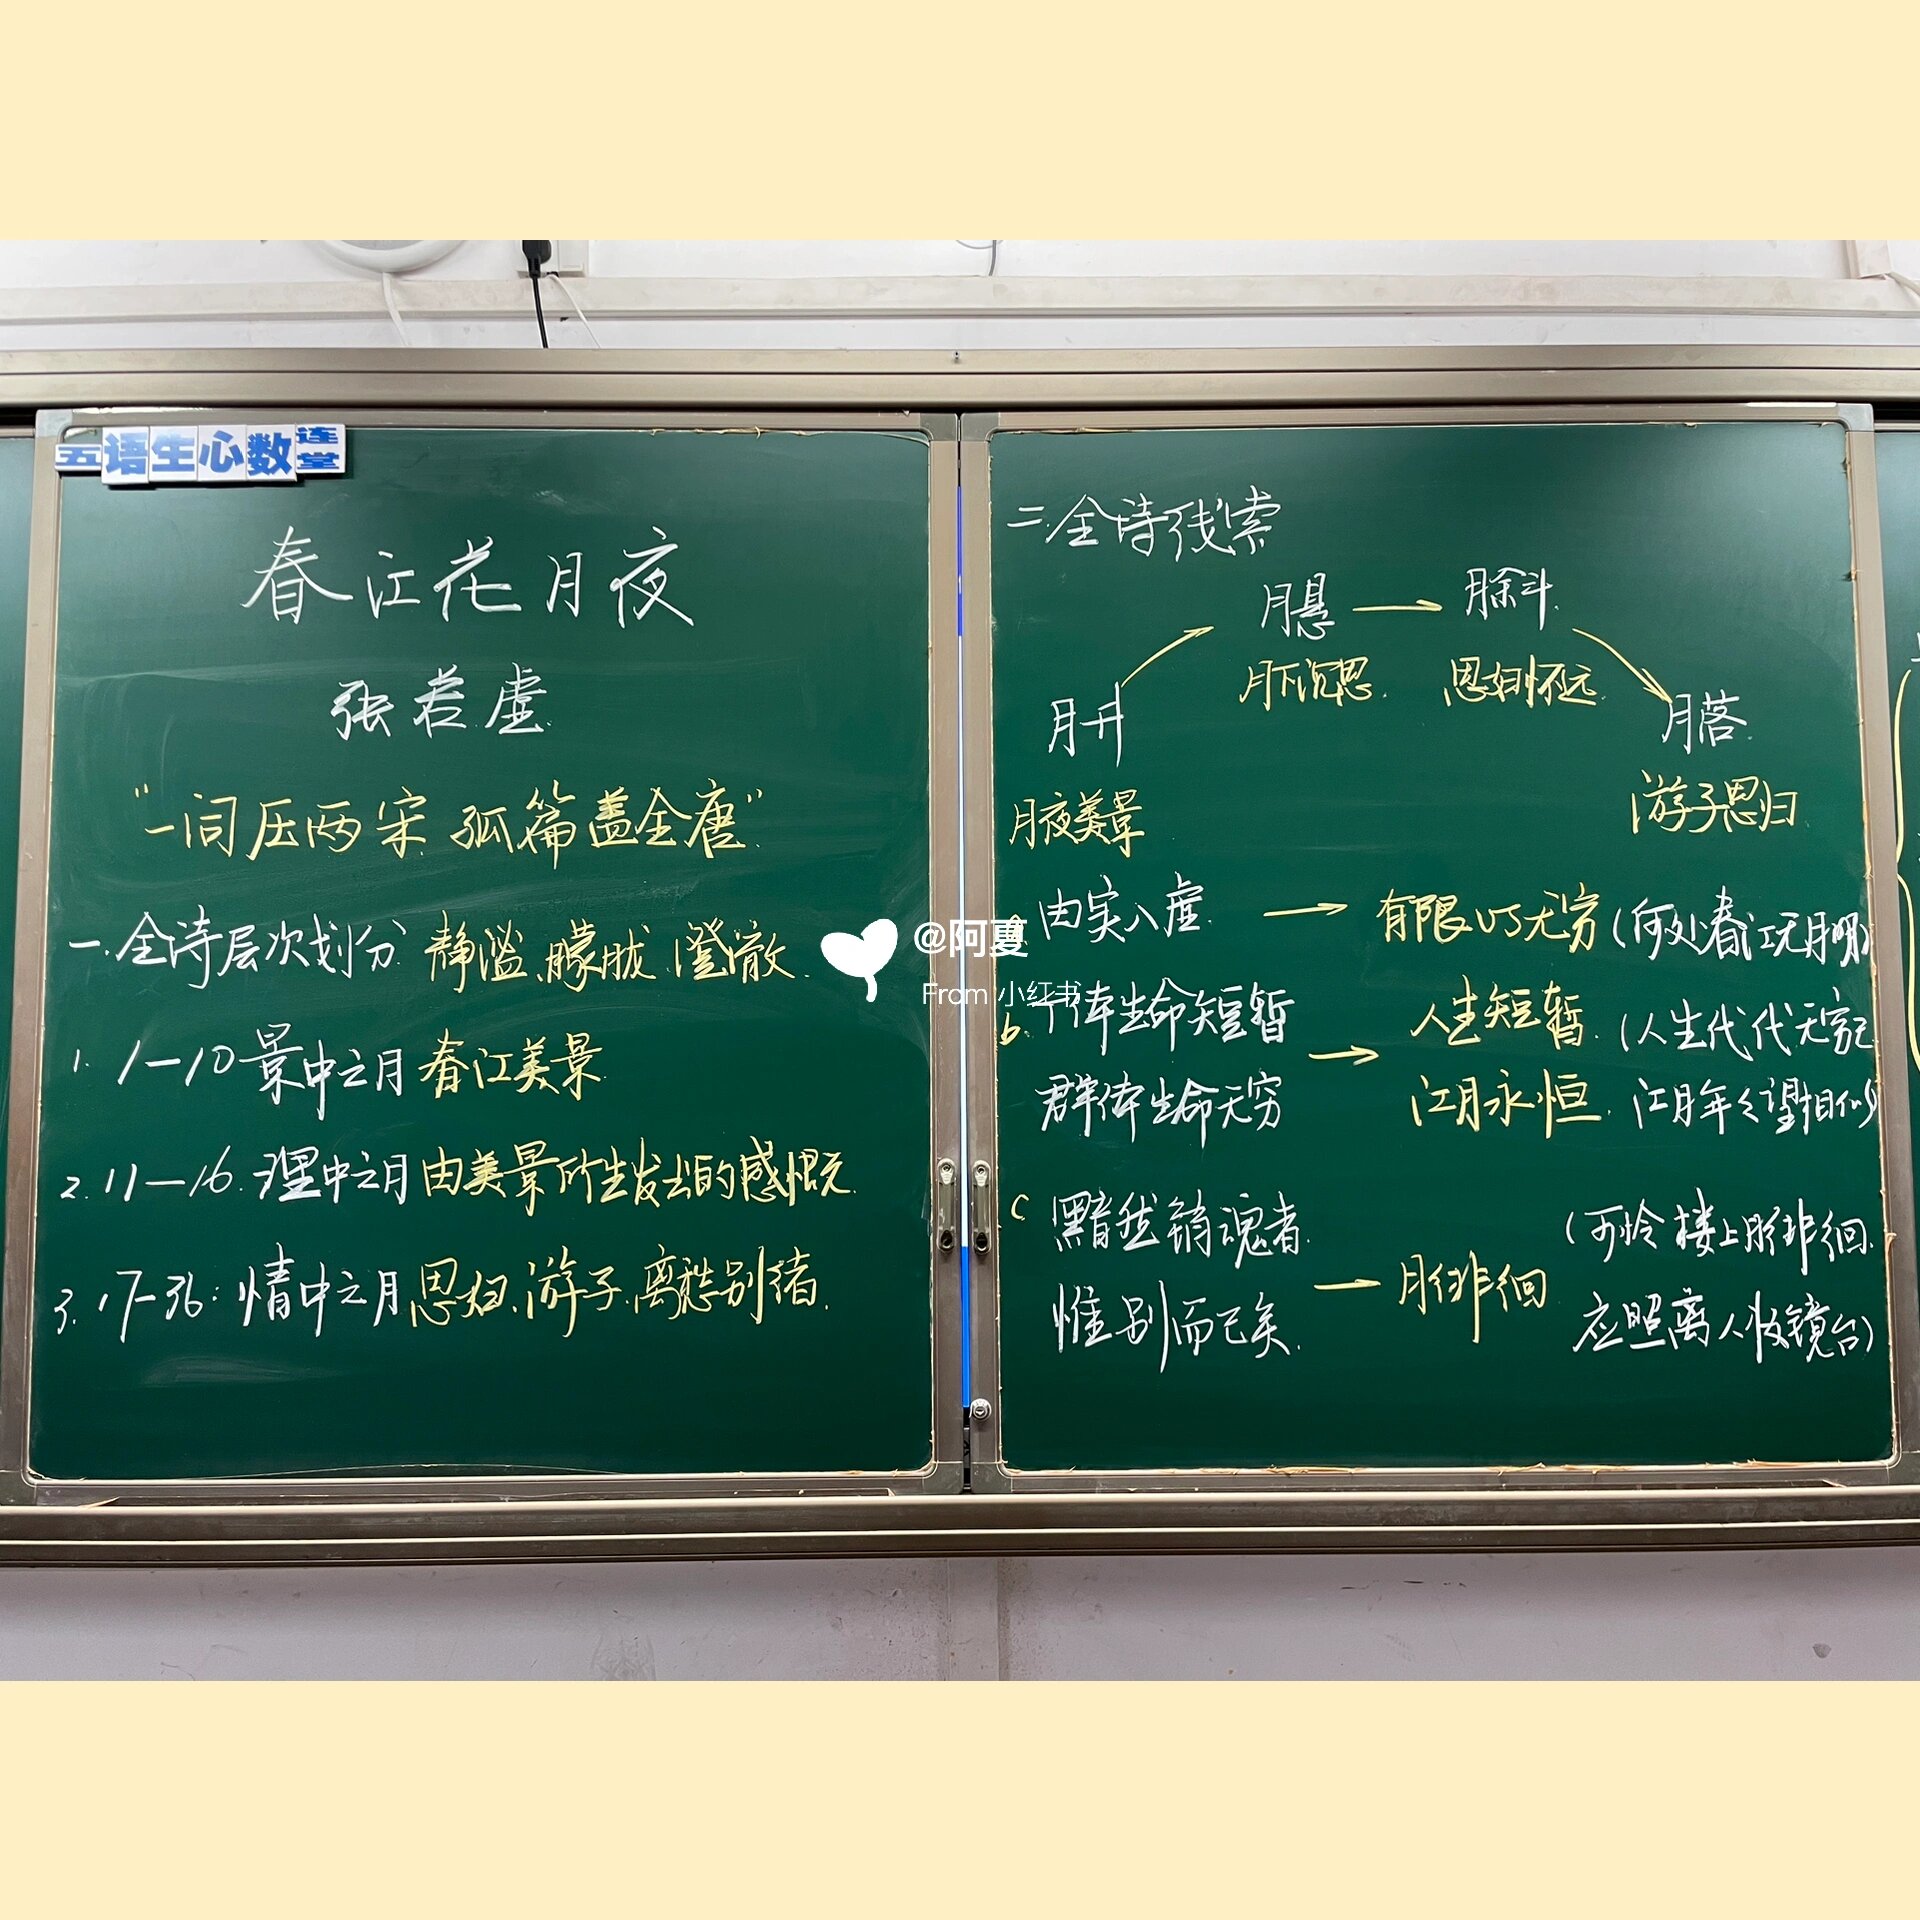 五语生心数连堂
春江花月夜
张若虚
“一词压两宋 孤篇盖全唐”
一.全诗层次划分 静谧、朦胧、澄澈.
1. 1—10 景中之月 春江美景
2. 11—16. 理中之月 由美景所生发出的感慨.
3. 17-36: 情中之月 思妇、游子、离愁别绪.
二.全诗线索
月悬 → 月斜.
月下沉思. 思妇怀远.
月升
月落.
月夜美景
游子思归
由实入虚. → 有限VS无穷 (何处春江无月明)
b. 个体生命短暂 → 人生短暂. (人生代代无穷已
群体生命无穷 江月永恒. 江月年年望相似)
c 黯然销魂者. → 月徘徊 (可怜楼上月徘徊.
惟别而已矣. 应照离人妆镜台)
@阿夏
From 小红书